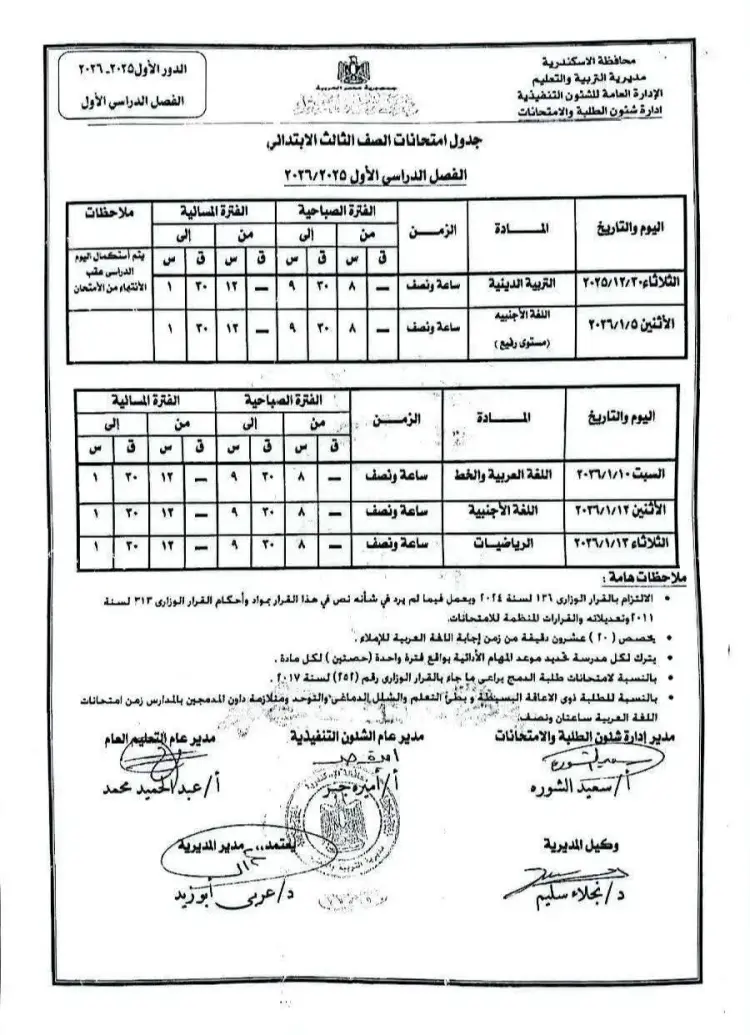 محافظة الاسكندرية
مديرية التربية والتعليم
الإدارة العامة للشئون التنفيذية
ادارة شئون الطلبة والامتحانات
جمهورية مصر العربية
الدور الأول ٢٠٢٥-٢٠٢٦
الفصل الدراسي الأول
جدول امتحانات الصف الثالث الابتدائي
الفصل الدراسي الأول ٢٠٢٦/٢٠٢٥
اليوم والتاريخ المــادة الزمــن الفترة الصباحية الفترة المسائية ملاحظات
من إلى من إلى
ق س ق س ق س ق س
يتم أستكمال اليوم
الدراسى عقب
الأنتهاء من الأمتحان
الثلاثاء ٢٠٢٥/١٢/٣٠ التربية الدينية ساعة ونصف — ٨ ٣٠ ٩ — ١٢ ٣٠ ١
الأثنين ٢٠٢٦/١/٥ اللغة الأجنبيه (مستوى رفيع) ساعة ونصف — ٨ ٣٠ ٩ — ١٢ ٣٠ ١
اليوم والتاريخ المــادة الزمــن الفترة الصباحية الفترة المسائية
من إلى من إلى
ق س ق س ق س ق س
السبت ٢٠٢٦/١/١٠ اللغة العربية والخط ساعة ونصف — ٨ ٣٠ ٩ — ١٢ ٣٠ ١
الأثنين ٢٠٢٦/١/١٢ اللغة الأجنبية ساعة ونصف — ٨ ٣٠ ٩ — ١٢ ٣٠ ١
الثلاثاء ٢٠٢٦/١/١٣ الرياضيات ساعة ونصف — ٨ ٣٠ ٩ — ١٢ ٣٠ ١
ملاحظات هامة :
• الالتزام بالقرار الوزارى ١٣٦ لسنة ٢٠٢٤ ويعمل فيما لم يرد في شأنه نص في هذا القرار بمواد وأحكام القرار الوزارى ٣١٣ لسنة
٢٠١١ وتعديلاته والقرارات المنظمة للامتحانات.
• يخصص (٢٠) عشرون دقيقة من زمن إجابة اللغة العربية للإملاء .
• يترك لكل مدرسة تحديد موعد المهام الأدائية بواقع فترة واحدة (حصتين) لكل مادة .
• بالنسبة لامتحانات طلبة الدمج يراعى ما جاء بالقرار الوزارى رقم (٢٥٢) لسنة ٢٠١٧ .
• بالنسبة للطلبة ذوى الاعاقة البسيطة و بطئ التعلم والشلل الدماغى والتوحد ومتلازمة داون المدمجين بالمدارس زمن امتحانات
اللغة العربية ساعتان ونصف.
مدير إدارة شئون الطلبة والامتحانات مدير عام الشئون التنفيذية مدير عام التعليم العام
أ/ سعيد الشوره أ/ أميرة جبر أ/ عبد الحميد محمد
وكيل المديرية يعتمد،، مدير المديرية
د/ نجلاء سليم د/ عربى أبوزيد